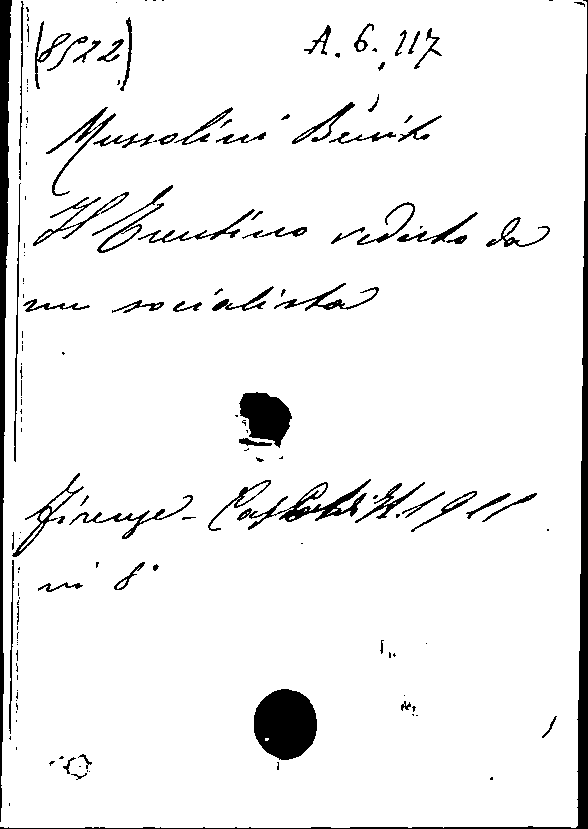 (8522) A. 6. 117
Mussolini Benito
Il Trentino veduto da
un socialista
Firenze - Cas 1911
in 8°